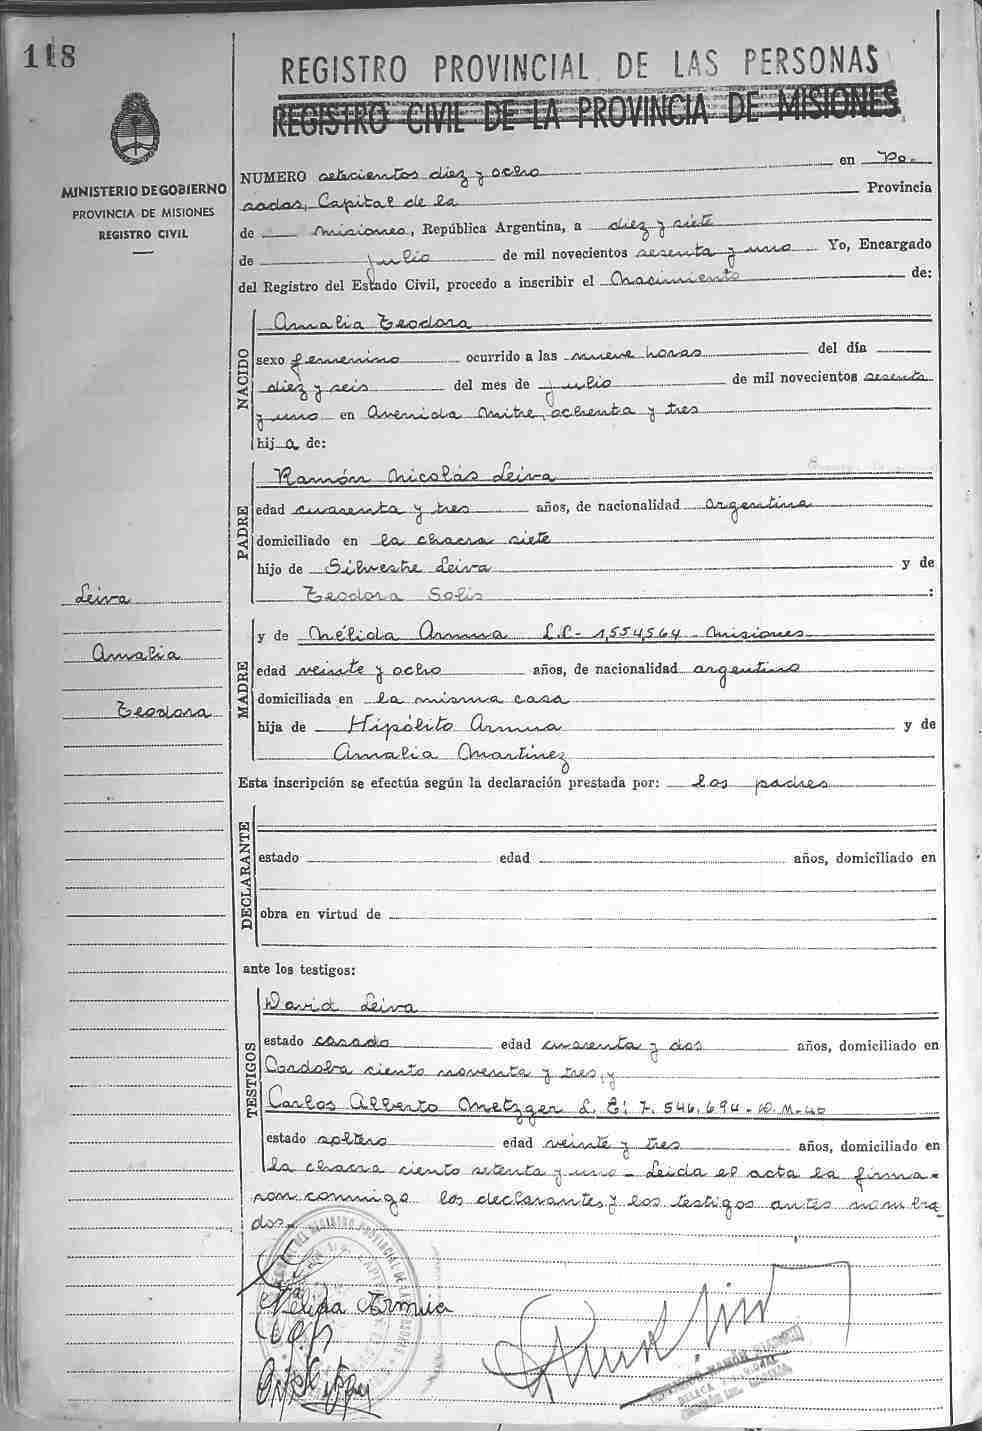 118
REGISTRO PROVINCIAL DE LAS PERSONAS
REGISTRO CIVIL DE LA PROVINCIA DE MISIONES
MINISTERIO DE GOBIERNO
PROVINCIA DE MISIONES
REGISTRO CIVIL
NUMERO setecientos diez y ocho en Po-
sadas, Capital de la Provincia
de Misiones, República Argentina, a diez y siete
de julio de mil novecientos sesenta y uno Yo, Encargado
del Registro del Estado Civil, procedo a inscribir el Nacimiento de:
NACIDO
Amalia Teodora
sexo femenino ocurrido a las nueve horas del día
diez y seis del mes de julio de mil novecientos sesenta
y uno en Avenida Mitre, ochenta y tres
hija de:
PADRE
Ramón Nicolás Leiva
edad cuarenta y tres años, de nacionalidad argentina
domiciliado en la chacra siete
hijo de Silvestre Leiva y de
Teodora Solis :
Leiva
Amalia
Teodora
MADRE
y de Nélida Armua L.C- 1,554,564 - Misiones
edad veinte y ocho años, de nacionalidad argentina
domiciliada en la misma casa
hija de Hipólito Armua y de
Amalia Martínez
Esta inscripción se efectúa según la declaración prestada por: los padres
DECLARANTE
estado edad años, domiciliado en
obra en virtud de
ante los testigos:
TESTIGOS
David Leiva
estado casado edad cuarenta y dos años, domiciliado en
Cordoba ciento noventa y tres, y
Carlos Alberto Metzger L. E: 7.546.694 - D.M-40
estado soltero edad veinte y tres años, domiciliado en
la chacra ciento setenta y uno - Leida el acta la firma-
ron conmigo los declarantes, y los testigos antes nombra-
dos-
Nelida Armua